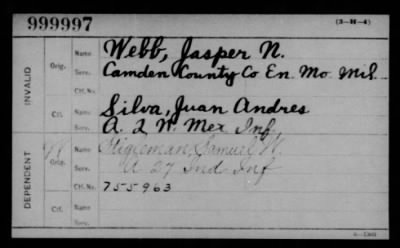 999997
(3-H-4)
INVALID
Orig.
Name Webb, Jasper N.
Serv. Camden County Co En. Mo. Mil.
Ctf. No.
Ctf.
Name Silva, Juan Andres
Serv. A. 2 N. Mex Inf.
DEPENDENT
Orig.
Name Samuel W.
Serv. A 27 Ind Inf
Ctf. No. 755963
Ctf.
Name
Serv.